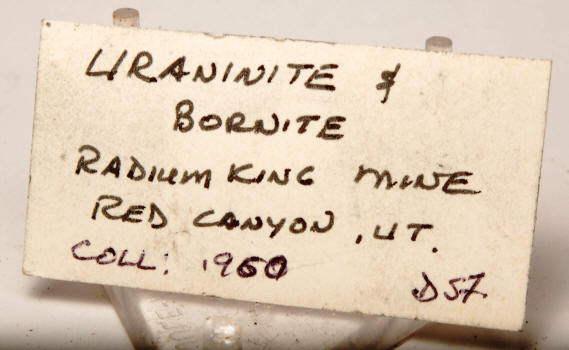 URANINITE &
BORNITE
RADIUM KING MINE
RED CANYON, UT.
COLL: 1960 D57